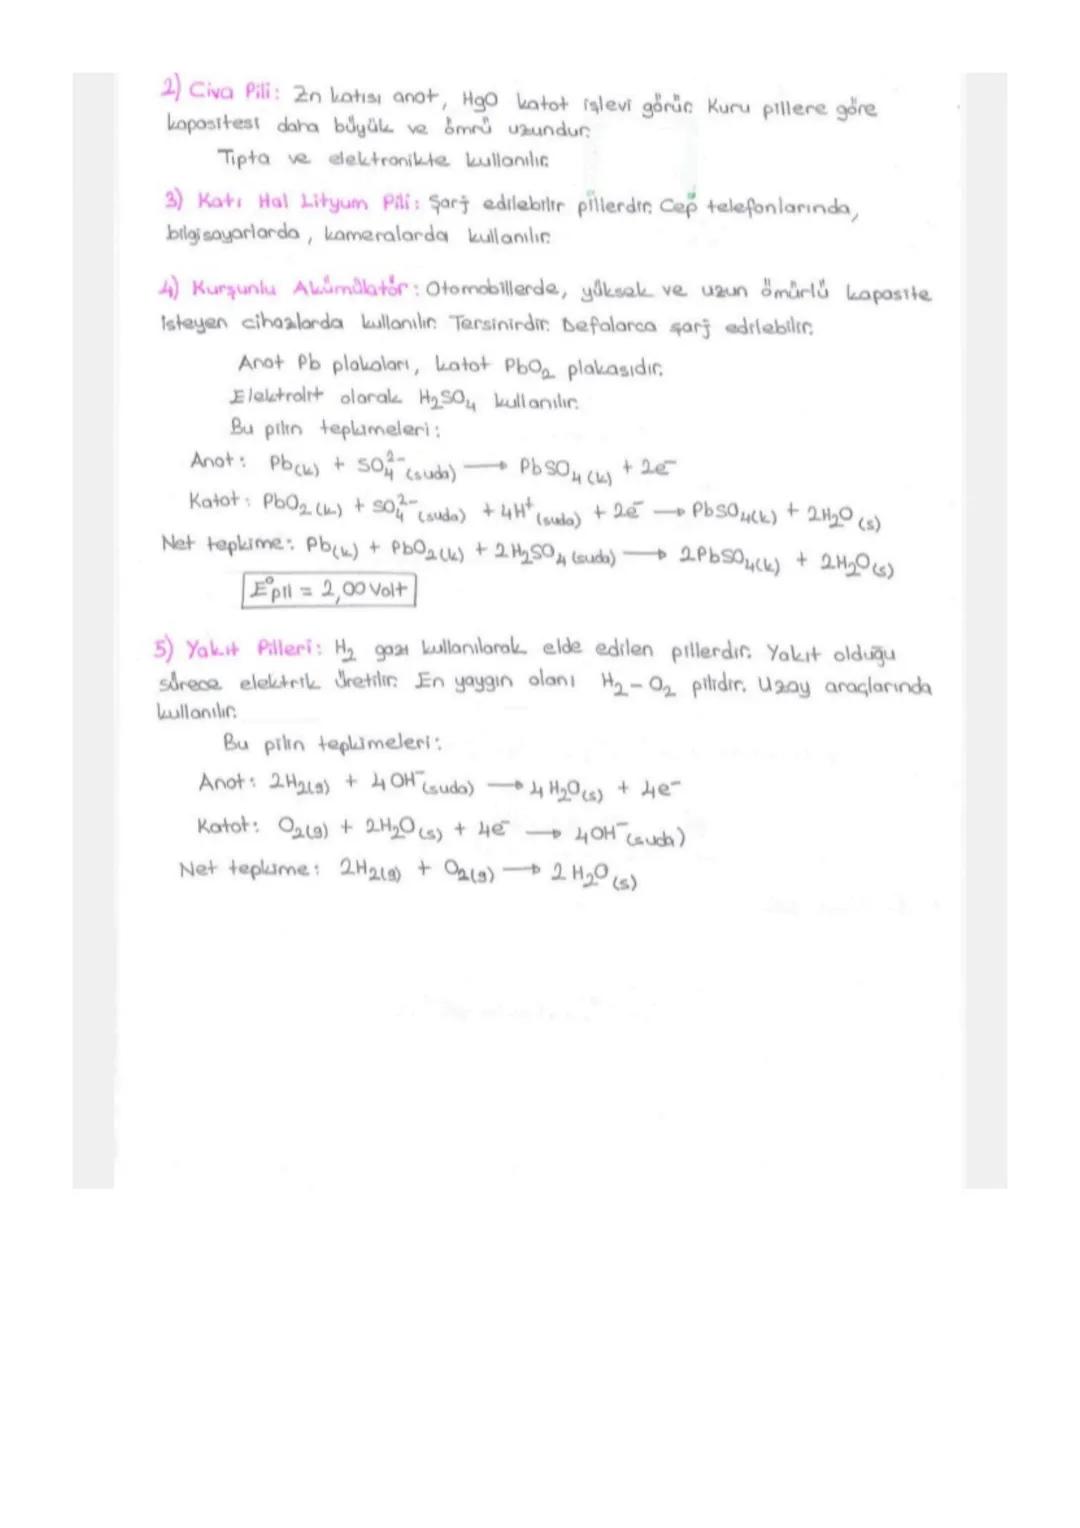 2) Civa Pili: Zn katısı anot, HgO katot işlevi görür. Kuru pillere göre
kapasitesi daha büyük ve ömrü uzundur.
Tıpta ve elektronikte kullanılır.
3) Katı Hal Lityum Pili: Şarj edilebilir pillerdir. Cep telefonlarında,
bilgisayarlarda, kameralarda kullanılır.
4) Kurşunlu Akümülatör: Otomobillerde, yüksek ve uzun ömürlü kapasite
isteyen cihazlarda kullanılır. Tersinirdir. Defalarca şarj edilebilir.
Anot Pb plakaları, katot PbO₂ plakasıdır.
Elektrolit olarak H₂SO₄ kullanılır.
Bu pilin tepkimeleri:
Anot: Pb(k) + SO₄²⁻(suda) → PbSO₄(k) + 2e⁻
Katot: PbO₂(k) + SO₄²⁻(suda) + 4H⁺(suda) + 2e⁻ → PbSO₄(k) + 2H₂O(s)
Net tepkime: Pb(k) + PbO₂(k) + 2H₂SO₄(suda) → 2PbSO₄(k) + 2H₂O(s)
E°pil = 2,00 Volt
5) Yakıt Pilleri: H₂ gazı kullanılarak elde edilen pillerdir. Yakıt olduğu
sürece elektrik üretilir. En yaygın olanı H₂-O₂ pilidir. Uzay araçlarında
kullanılır.
Bu pilin tepkimeleri:
Anot: 2H₂(g) + 4OH⁻(suda) → 4H₂O(s) + 4e⁻
Katot: O₂(g) + 2H₂O(s) + 4e⁻ → 4OH⁻(suda)
Net tepkime: 2H₂(g) + O₂(g) → 2H₂O(s)